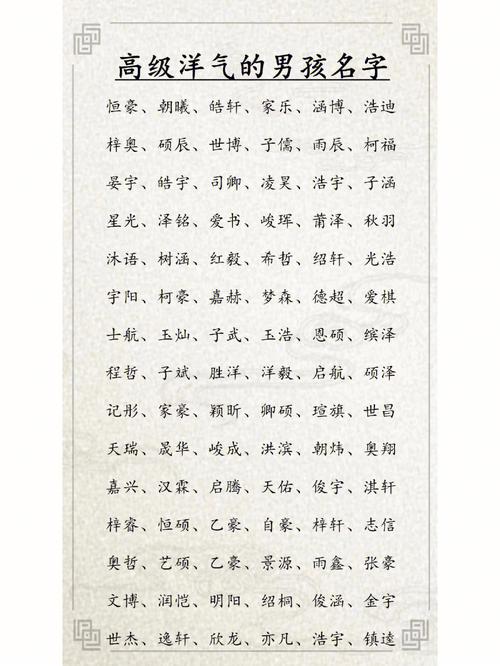 高级洋气的男孩名字
恒豪、朝曦、皓轩、家乐、涵博、浩迪
梓奥、硕辰、世博、子儒、雨辰、柯福
晏宇、皓宇、司卿、凌昊、浩宇、子涵
星光、泽铭、爱书、峻珲、莆泽、秋羽
沐语、树涵、红毅、希哲、绍轩、光浩
宇阳、柯豪、嘉赫、梦森、德超、爱棋
士航、玉灿、子武、玉浩、恩硕、缤泽
程哲、子斌、胜洋、洋毅、启航、硕泽
记彤、家豪、颖昕、卿硕、瑄旗、世昌
天瑞、晟华、峻成、洪滨、朝炜、奥翔
嘉兴、汉霖、启腾、天佑、俊宇、淇轩
梓睿、恒硕、乙豪、自豪、梓轩、志信
奥哲、艺硕、乙豪、景源、雨鑫、张豪
文博、润恺、明阳、绍桐、俊涵、金宇
世杰、逸轩、欣龙、亦凡、浩宇、镇逵